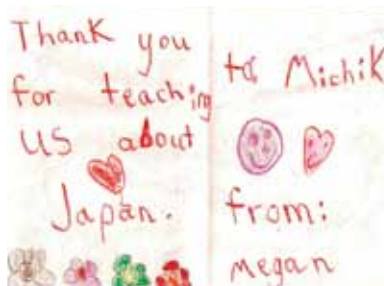 Thank you
for teaching
us about
Japan.
to Michik
from:
megan